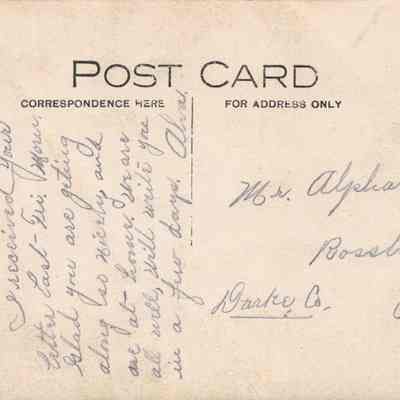 POST CARD
CORRESPONDENCE HERE
FOR ADDRESS ONLY
I received your
letter last Fri. morn.
Glad you are geting
along so nicely and
are at home. We are
all well, will write you
in a few days. Alva.
Mr. Alpha
Rossb
Darke Co.